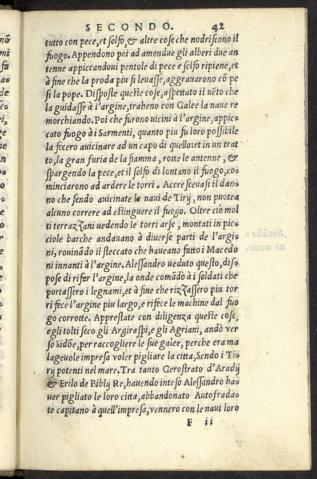 SECONDO. 42
tutto con pece, et solfo, & altre cose che nodriscono il
fuogo. Appendono poi ad amendue gli alberi due an
tenne appiccandoui pentole di pece e solfo ripiene, et
à fine che la proda piu si leuasse, aggrauarono cō pe
si la pope. Disposte queste cose, aspettato il uēto che
la guidasse à l'argine, traheno con Galee la naue re
morchiando. Poi che furono uicini à l'argine, appic-
cato fuogo à i Sarmenti, quanto piu fu loro possibile
la fecero auicinare ad un capo di quello et in un trat
to, la gran furia de la fiamma, rotte le antenne, &
spargendo la pece, et il solfo di lontano il fuogo, co-
minciarono ad ardere le torri. Accresceuasi il dan-
no che sendo auicinate le naui de Tirij, non puotea
alcuno correre ad estinguere il fuogo. Oltre ciò mol
ti terrazzani uedendo le torri arse, montati in pic-
ciole barche andauano à diuerse parti de l'argi-
ni, rouinādo il steccato che haueano fatto i Macedo
ni innanti à l'argine. Alessandro ueduto questo, dis-
pose di rifer l'argine, la onde comādò à i soldati che
portassero i legnami, et à fine che rizzassero piu tor
ri fece l'argine piu largo, e rifece le machine dal fuo
go corrotte. Apprestate con diligenza queste cose,
egli tolti seco gli Argiraspi, e gli Agriani, andò ver
so Sidōe, per raccogliere le sue galee, perche era ma
lageuole impresa voler pigliare la citta, Sendo i Ti-
rij potenti nel mare. Tra tanto Gerostrato d'Aradij
& Erilo de Biblij Re, hauendo inteso Alessandro ha-
uer pigliato le loro citta, abbandonato Autofrada-
te capitano à quell'impresa, vennero con le naui loro
F ii